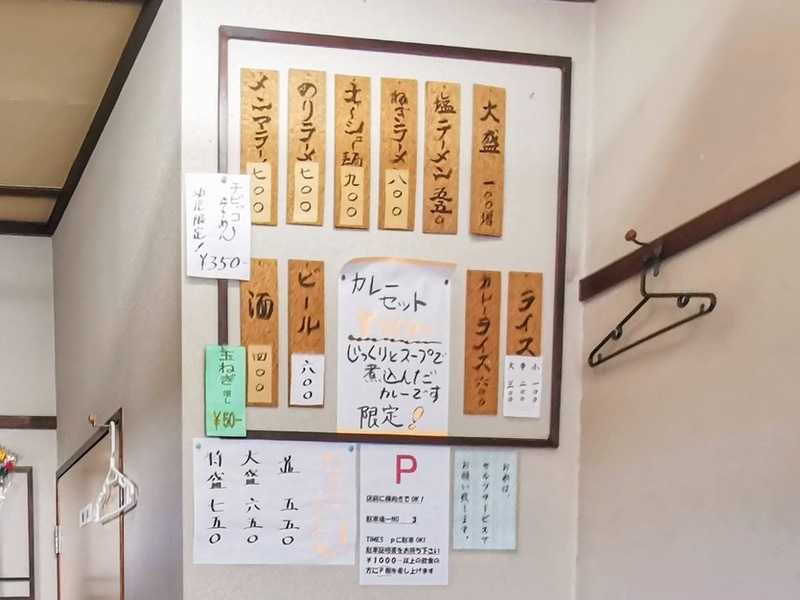 大盛 一〇〇増
塩ラーメン 五五〇
ねぎラーメン 八〇〇
チャーシュー麺 九〇〇
のりラーメン 七〇〇
メンマラーメン 七〇〇
チビッコらーめん
幼児限定!
¥350-
ライス
小 一〇〇
中 二〇〇
大 三〇〇
カレーライス 六〇〇
カレー
セット
じっくりとスープで
煮込んだ
カレーです
限定!
ビール 六〇〇
酒 四〇〇
玉ねぎ 増し
¥50-
並 五五〇
大盛 六五〇
特盛 七五〇
P
店前に横向きでOK!
駐車場ーNO 3
TIMES Pに駐車OK!
駐車証明書をお持ち下さい
¥1000-以上の飲食の
方にP券を差し上げます
お水は、
セルフサービスで
お願い致します。